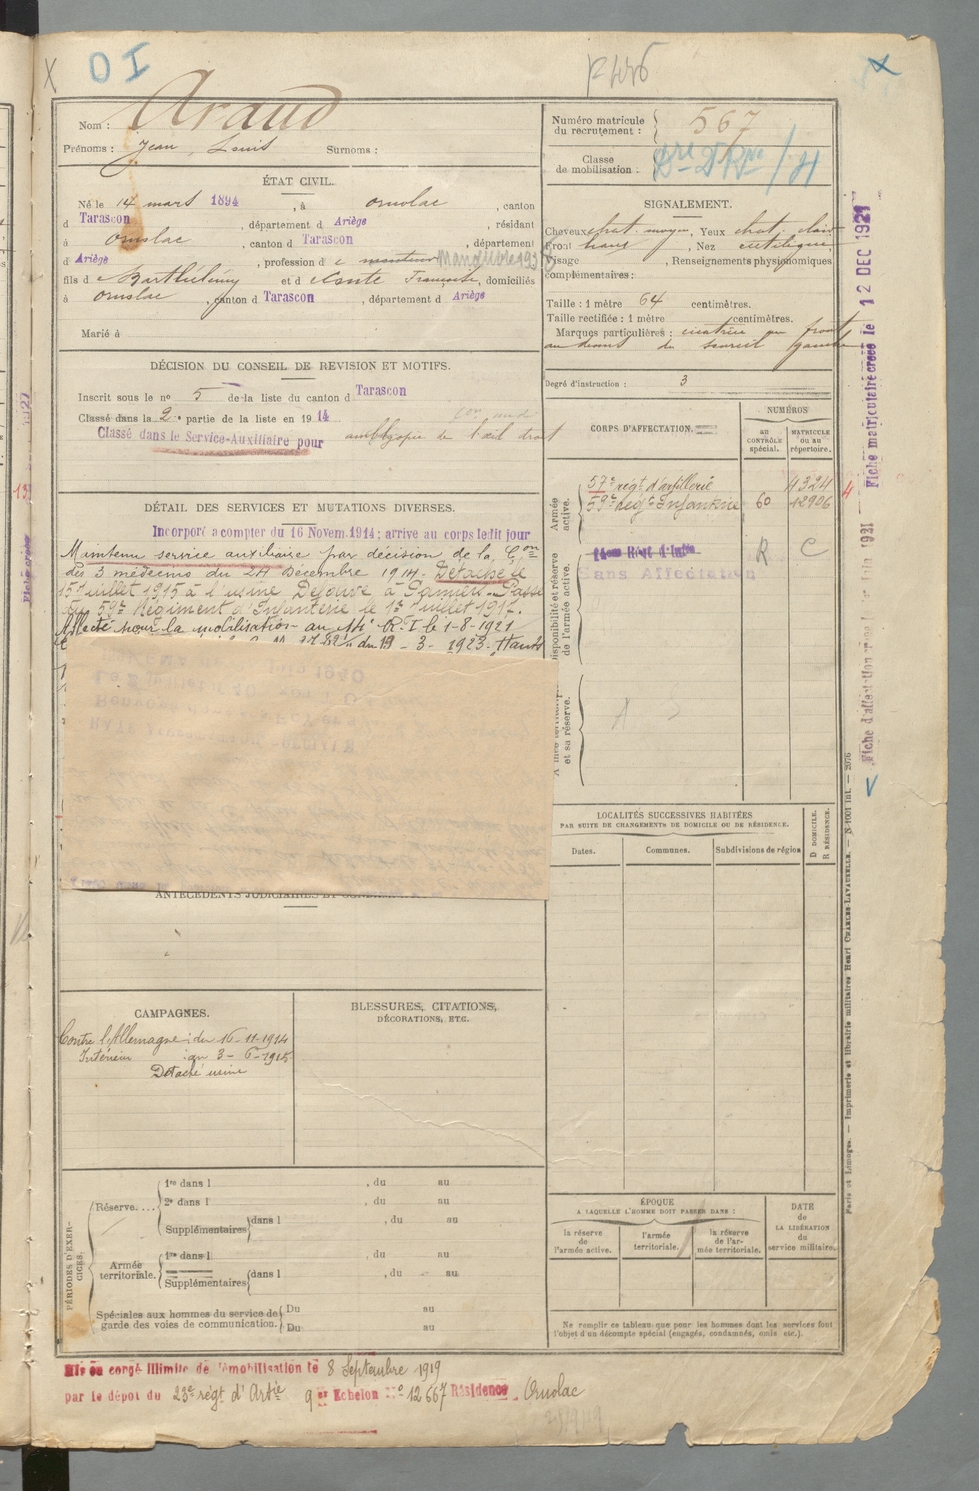 O I
Nom : Araud
Prénoms : Jean Louis Surnoms :
ÉTAT CIVIL.
Né le 14 mars 1894, à Ornolac, canton
d Tarascon, département d Ariège, résidant
à Ornolac, canton d Tarascon, département
d Ariège, profession d
fils d e Barthélémy et d e Fonte Françoise, domiciliés
à Ornolac, canton d Tarascon, département d Ariège
Marié à
DÉCISION DU CONSEIL DE REVISION ET MOTIFS.
Inscrit sous le no 5 de la liste du canton d Tarascon
Classé dans la 2e partie de la liste en 1914
Classé dans le Service-Auxiliaire pour amblyopie de l'œil droit
DÉTAIL DES SERVICES ET MUTATIONS DIVERSES.
Incorporé a compter du 16 Novem. 1914; arrive au corps ledit jour
Maintenu service auxiliaire par décision de la Con
des 3 médecins du 24 Décembre 1914. Détaché le
15 Juillet 1915 à l'usine à Pamiers. Passé
au 59e Régiment d'Infanterie le 1er Juillet 1917.
Affecté pour la mobilisation au R. I. le 1-8-1921
du 19-3-1923.
ANTÉCÉDENTS JUDICIAIRES ET
CAMPAGNES.
Contre l'Allemagne : du 16-11-1914
Intérieur : au 3-6-1915
Détaché usine
BLESSURES, CITATIONS,
DÉCORATIONS, ETC.
PÉRIODES D'EXERCICES.
Réserve....
1re dans l , du au
2e dans l , du au
Supplémentaires dans l , du au
Armée territoriale.
1re dans l , du au
Supplémentaires dans l , du au
Spéciales aux hommes du service de
garde des voies de communication.
Du au
Du au
Mis en congé illimité de démobilisation le 8 Septembre 1919
par le dépôt du 23e régt d'Artie 9 er Echelon No 12667 Résidence Ornolac
Numéro matricule
du recrutement : 567
Classe
de mobilisation :
SIGNALEMENT.
Cheveux chat. moyen, Yeux chat. clair
Front haut, Nez rectiligne
Visage , Renseignements physionomiques
complémentaires :
Taille : 1 mètre 64 centimètres.
Taille rectifiée : 1 mètre centimètres.
Marques particulières : cicatrice au front
au dessus du sourcil gauche
Degré d'instruction : 3
CORPS D'AFFECTATION.
NUMÉROS
au
CONTRÔLE
spécial.
MATRICULE
ou au
répertoire.
Armée
active.
57e régt d'artillerie 4324
59e régt d'Infanterie 60 12906
Disponibilité et réserve
de l'armée active.
Régt d'Infie R C
Sans Affectation
Armée territoriale
et sa réserve.
LOCALITÉS SUCCESSIVES HABITÉES
PAR SUITE DE CHANGEMENTS DE DOMICILE OU DE RÉSIDENCE.
Dates.
Communes.
Subdivisions de région
D DOMICILE.
R RÉSIDENCE.
ÉPOQUE
A LAQUELLE L'HOMME DOIT PASSER DANS :
la réserve
de
l'armée active.
l'armée
territoriale.
la réserve
de l'ar-
mée territoriale.
DATE
de
LA LIBÉRATION
du
service militaire.
Ne remplir ce tableau que pour les hommes dont les services font
l'objet d'un décompte spécial (engagés, condamnés, omis etc.).
Fiche matriculaire créée le 12 DEC 1921
Paris et Limoges. — Imprimerie et librairie militaires Henri CHARLES-LAVAUZELLE.